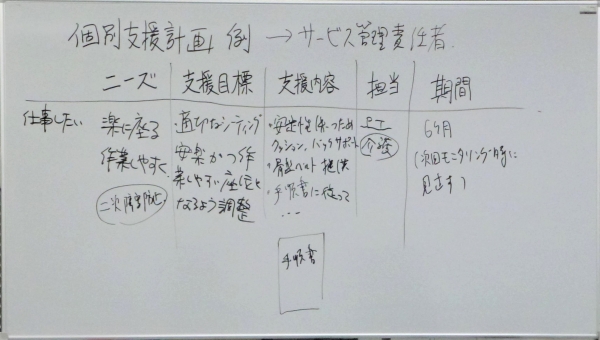 個別支援計画 例 → サービス管理責任者
ニーズ 支援目標 支援内容 担当 期間
仕事したい
楽に座る
作業しやすく
二次障害防止
適切なシーティング
安楽かつ作
業しやすい座位と
なるよう調整
・安定性を保つため
クッション、バックサポート
・骨盤ベルト 提供
・手順書に従って
・・・
PT
介護
6ヶ月
(次回モニタリング時に
見直す)
手順書